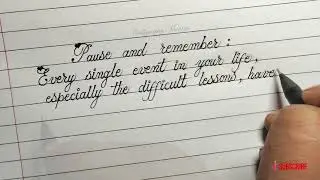 Pause and remember :
Every single event in your life,
especially the difficult lessons, have
SUBSCRIBE